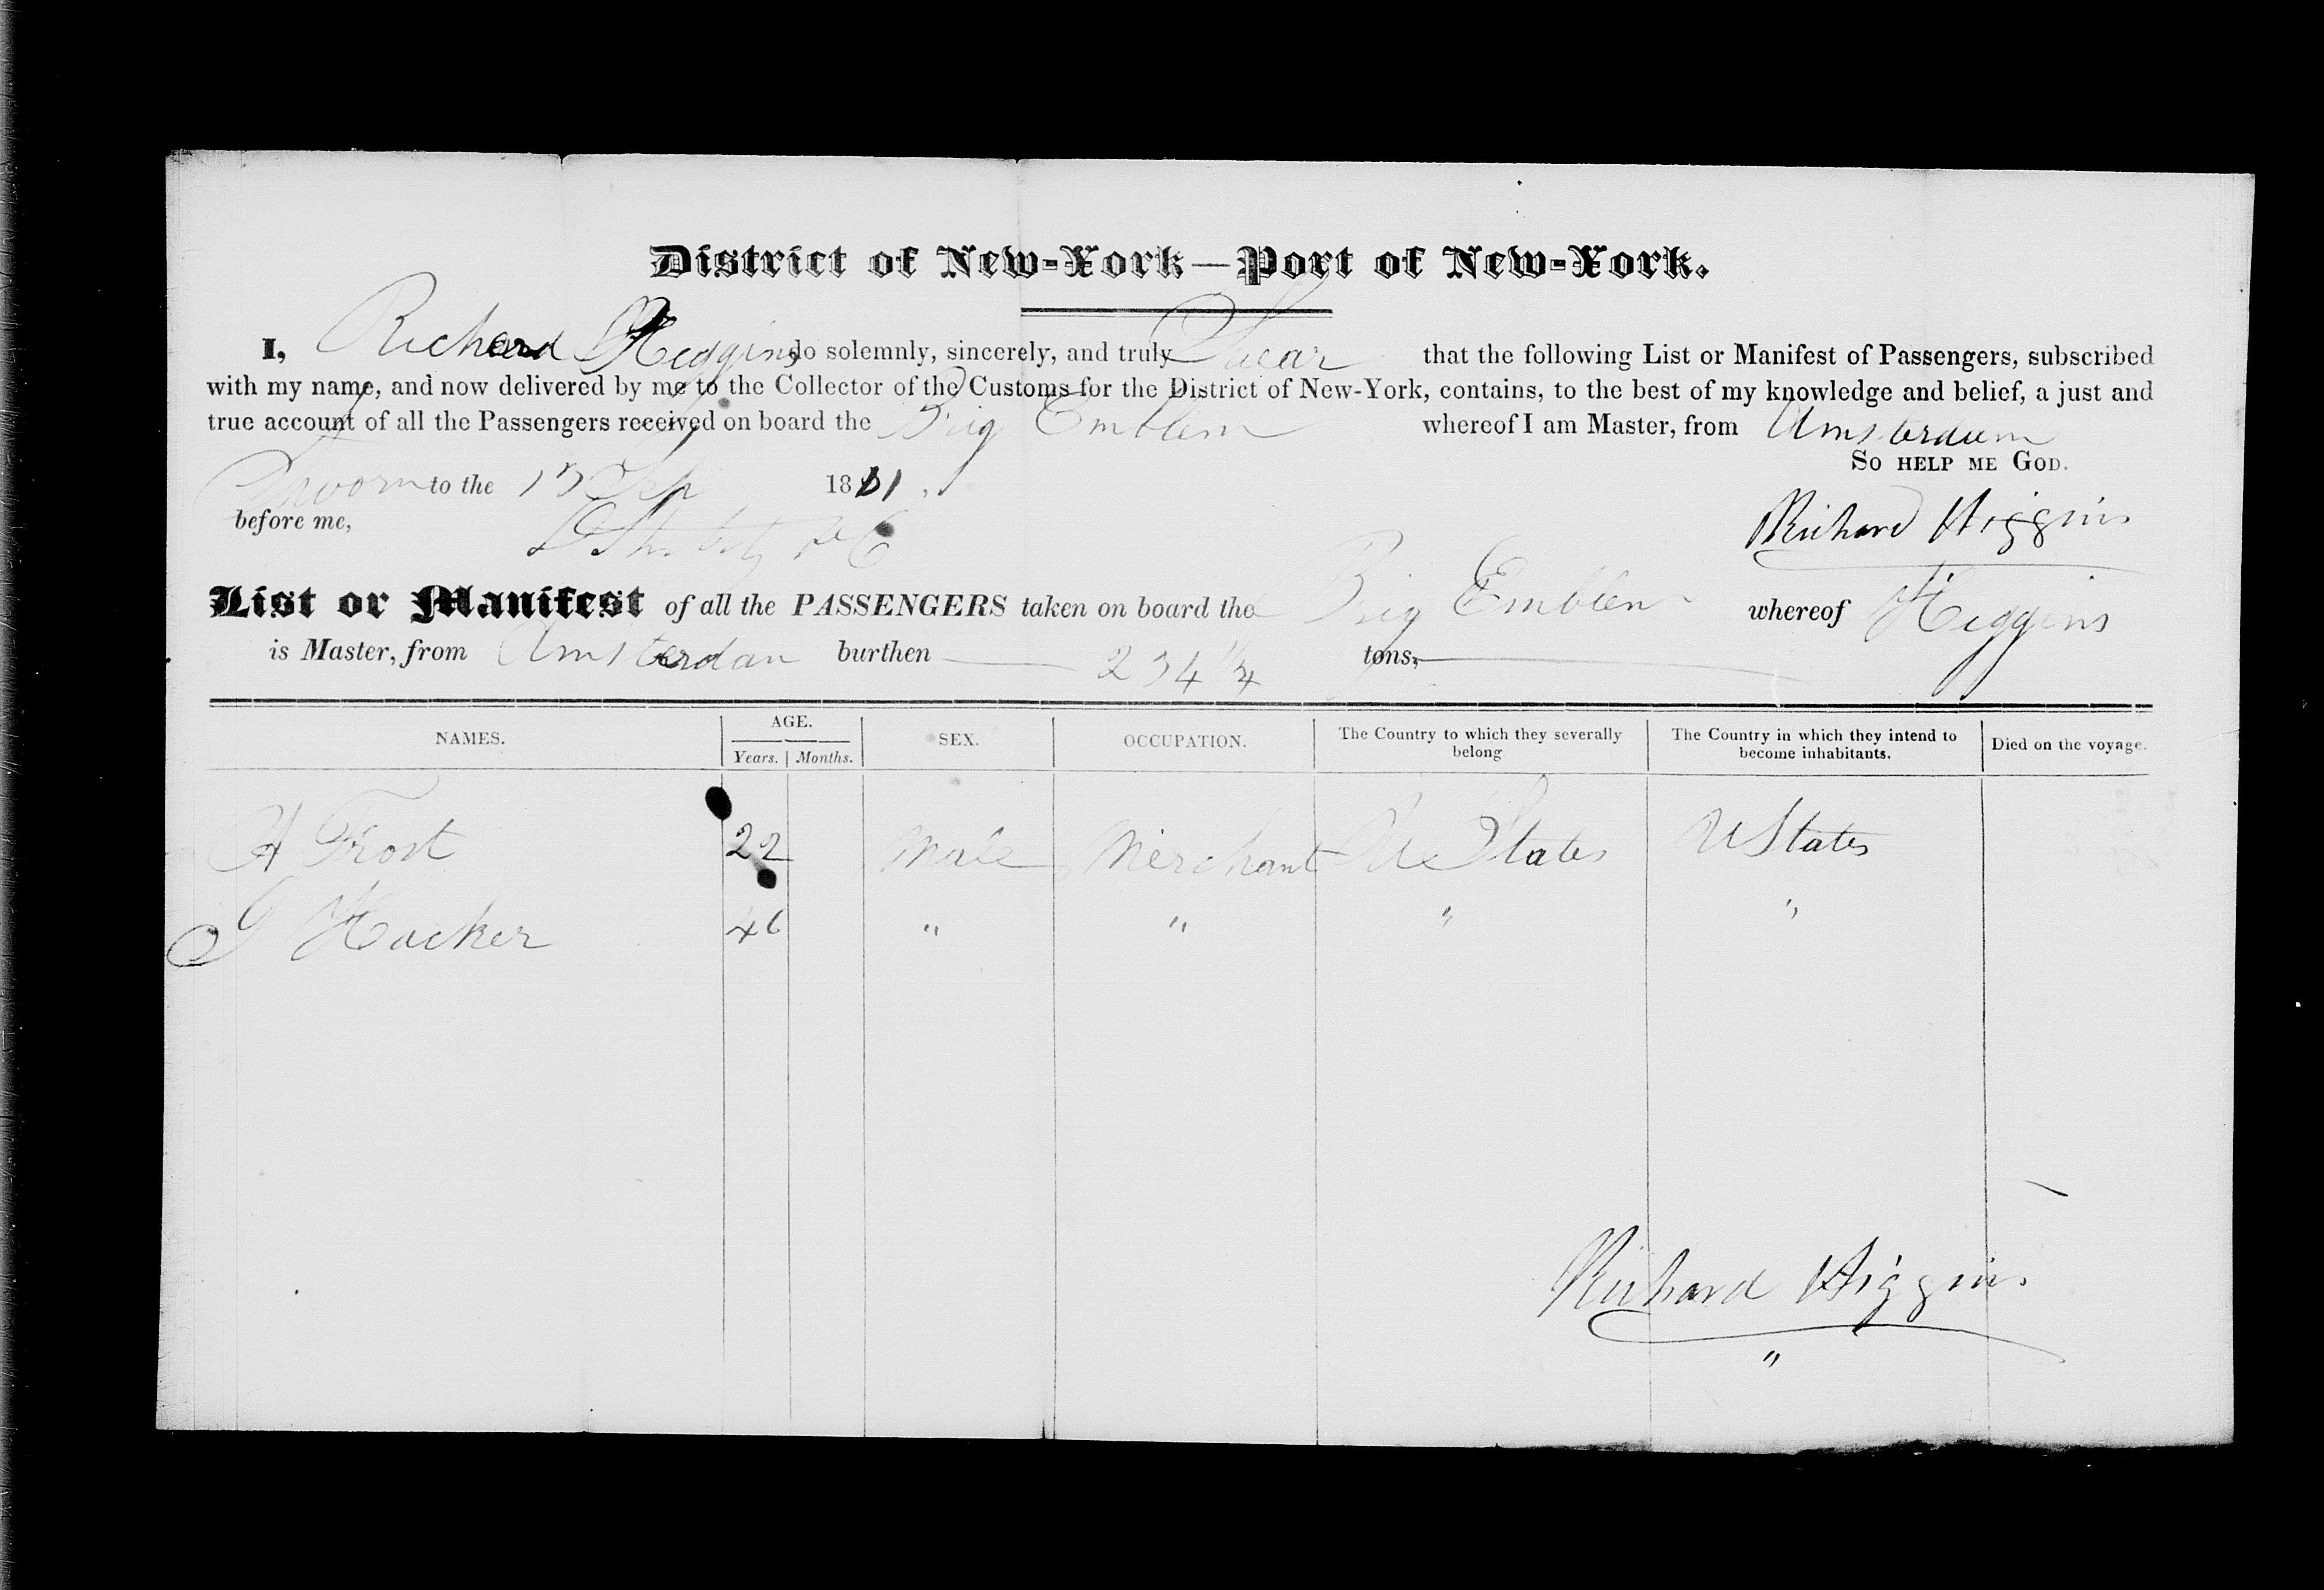 District of New-York—Port of New-York.
I, Richard Higgins do solemnly, sincerely, and truly Swear that the following List or Manifest of Passengers, subscribed
with my name, and now delivered by me to the Collector of the Customs for the District of New-York, contains, to the best of my knowledge and belief, a just and
true account of all the Passengers received on board the Brig Emblem whereof I am Master, from Amsterdam
So help me God.
Sworn to the 13 Sep 18
before me,
Richard Higgins
List or Manifest of all the PASSENGERS taken on board the Brig Emblem whereof Higgins
is Master, from Amsterdam burthen 234 tons,
NAMES. AGE. SEX. OCCUPATION. The Country to which they severally belong The Country in which they intend to become inhabitants. Died on the voyage.
Years. Months.
H Frost 22 Male Merchant U States U States
G Hacker 46 " " " "
Richard Higgins
"